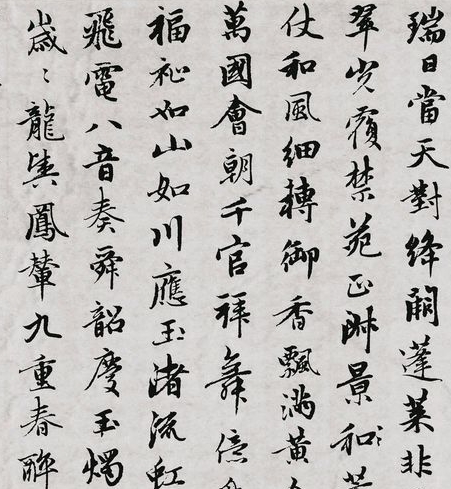 瑞日當天對絳闕蓬萊非
翠光覆禁苑正淑景和
仗和風細轉御香飄滿黃
萬國會朝千官拜舞億
福祉如山如川應玉渚流虹
飛電八音奏舜韶慶玉燭
歲〻龍輿鳳輦九重春醉